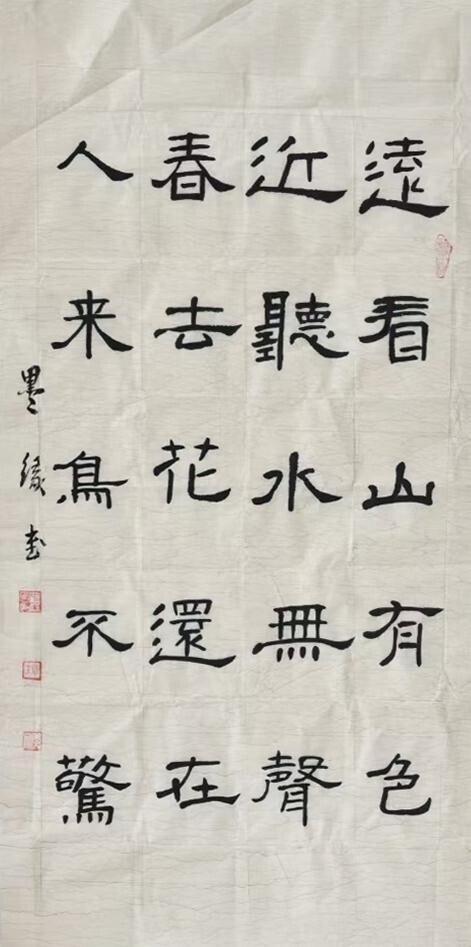 遠看山有色
近聽水無聲
春去花還在
人来鳥不驚
墨緣书